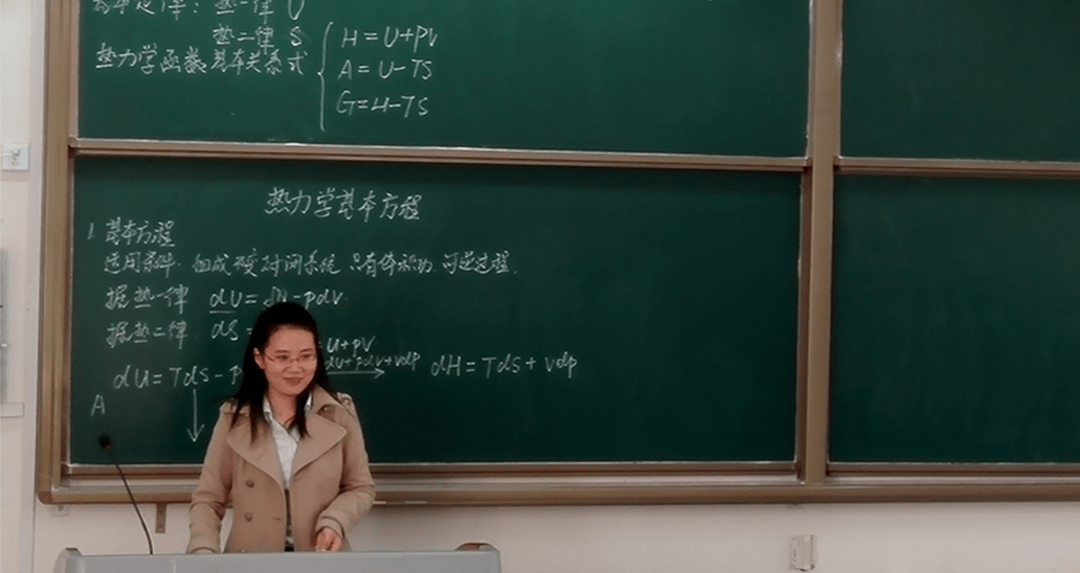 本定律: 热一律 U
热二律 S
热力学函数基本关系式
H = U + PV
A = U - TS
G = H - TS
热力学基本方程
1. 基本方程
适用条件. 组成不变封闭系统 只有体积功 可逆过程.
据热一律 dU = - pdV
据热二律 dS =
U + pV
dU + pdV + Vdp
dU = TdS - P
dH = TdS + Vdp
A